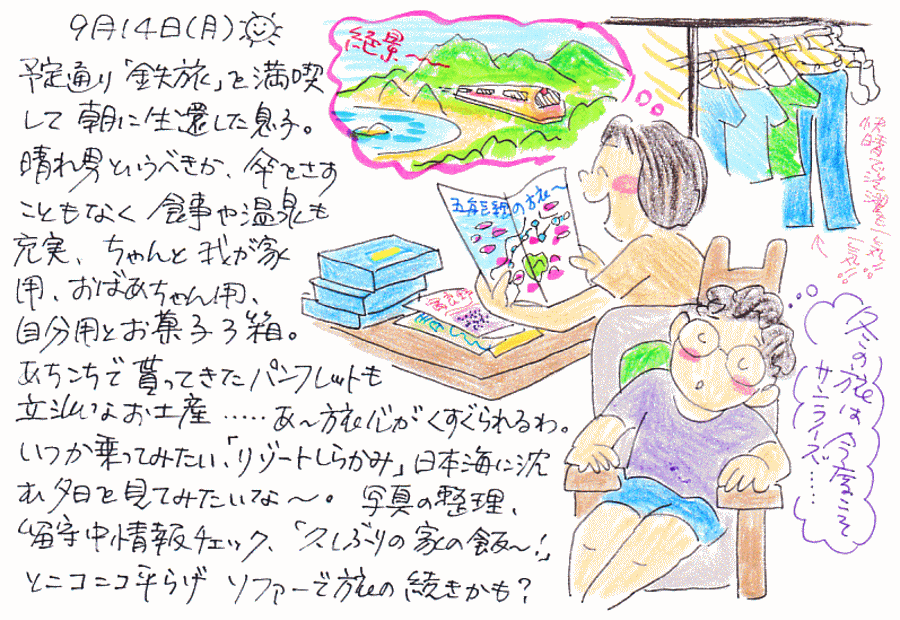 9月14日(月)
予定通り「鉄旅」を満喫
して朝に生還した息子。
晴れ男というべきか、傘をさす
こともなく食事や温泉も
充実、ちゃんと我が家
用、おばあちゃん用、
自分用とお菓子3箱。
あちこちで貰ってきたパンフレットも
立派なお土産……あ〜旅心がくすぐられるわ。
いつか乗ってみたい、「リゾートしらかみ」日本海に沈
む夕日を見てみたいな〜。写真の整理、
留守中情報チェック、「久しぶりの家の飯〜!」
とニコニコ平らげ ソファーで旅の続きかも?
絶景〜
五能線の旅〜
快晴で洗濯
これ!!
冬の旅は今度こそ
サンライズ……